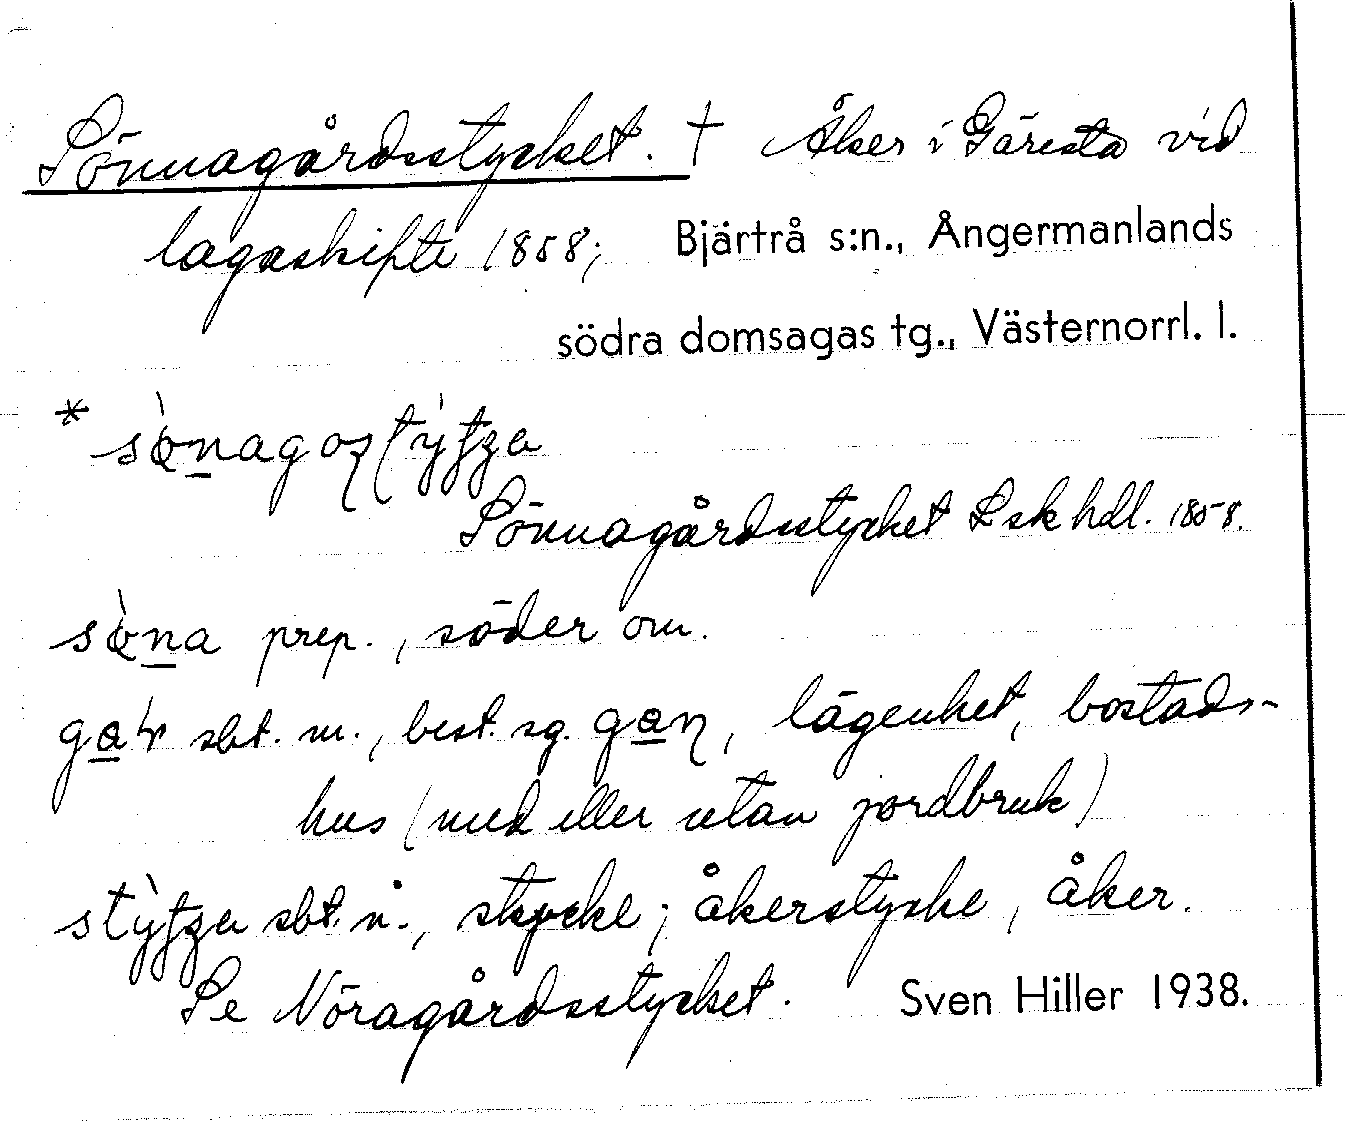 Sönnagårdsstycket. † Åker i Gäresta vid
lagaskifte 1858; Bjärtrå s:n., Ångermanlands
södra domsagas tg., Västernorrl. l.
Sönnagårdsstycket Lsk hdl. 1858.
prep., söder om.
sbt. m., best. sg. lägenhet, bostads-
hus (med eller utan jordbruk)
sbt. n., stycke; åkerstycke, åker.
Se Nöragårdsstycket. Sven Hiller 1938.